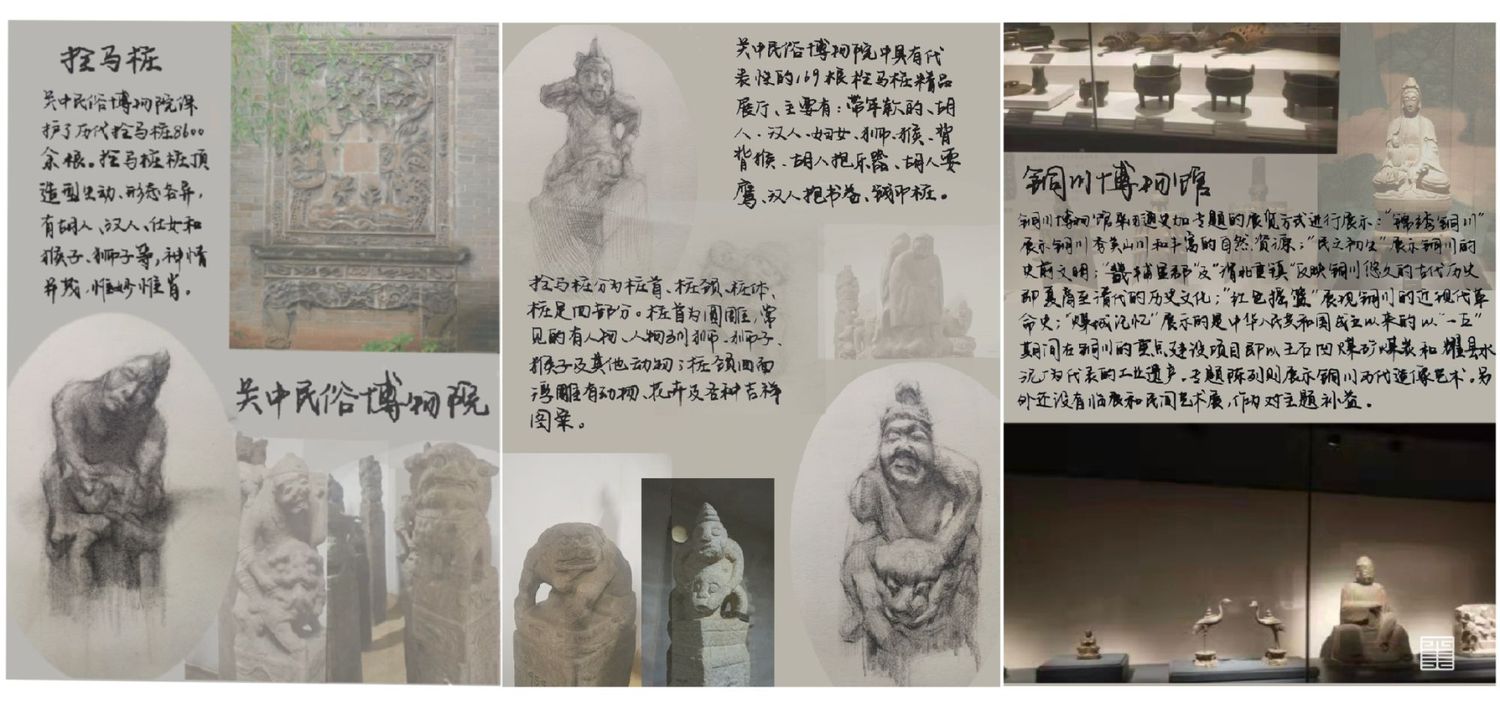 拴马桩
关中民俗博物院保
护了历代拴马桩8600
余根。拴马桩桩顶
造型生动、形态各异,
有胡人、汉人、仕女和
猴子、狮子等,神情
并茂,惟妙惟肖。
关中民俗博物院
关中民俗博物院中具有代
表性的169根拴马桩精品
展厅、主要有:带年款的、胡
人、汉人、妇女、狮、猴、背
背猴、胡人抱乐器、胡人耍
鹰、汉人抱书卷、钱币桩。
拴马桩分为桩首、桩颈、桩体、
桩足四部分。桩首为圆雕,常
见的有人物、人物驯狮、狮子、
猴子及其他动物;桩颈四面
浮雕有动物、花卉及各种吉祥
图案。
铜川博物馆
铜川博物馆采用通史加专题的展览方式进行展示:“锦绣铜川”
展示铜川秀美山川和丰富的自然资源;“民之初生”展示铜川的
史前文明;“畿辅里郡”及“渭北重镇”反映铜川悠久的古代历史
即夏商至清代的历史文化;“红色摇篮”展现铜川的近现代革
命史;“煤城记忆”展示的是中华人民共和国成立以来的以“一五”
期间在铜川的重点建设项目即以王石凹煤矿煤炭和耀县水
泥厂为代表的工业遗产。专题陈列则展示铜川历代造像艺术。另
外还设有临展和民间艺术展,作为对主题补益。